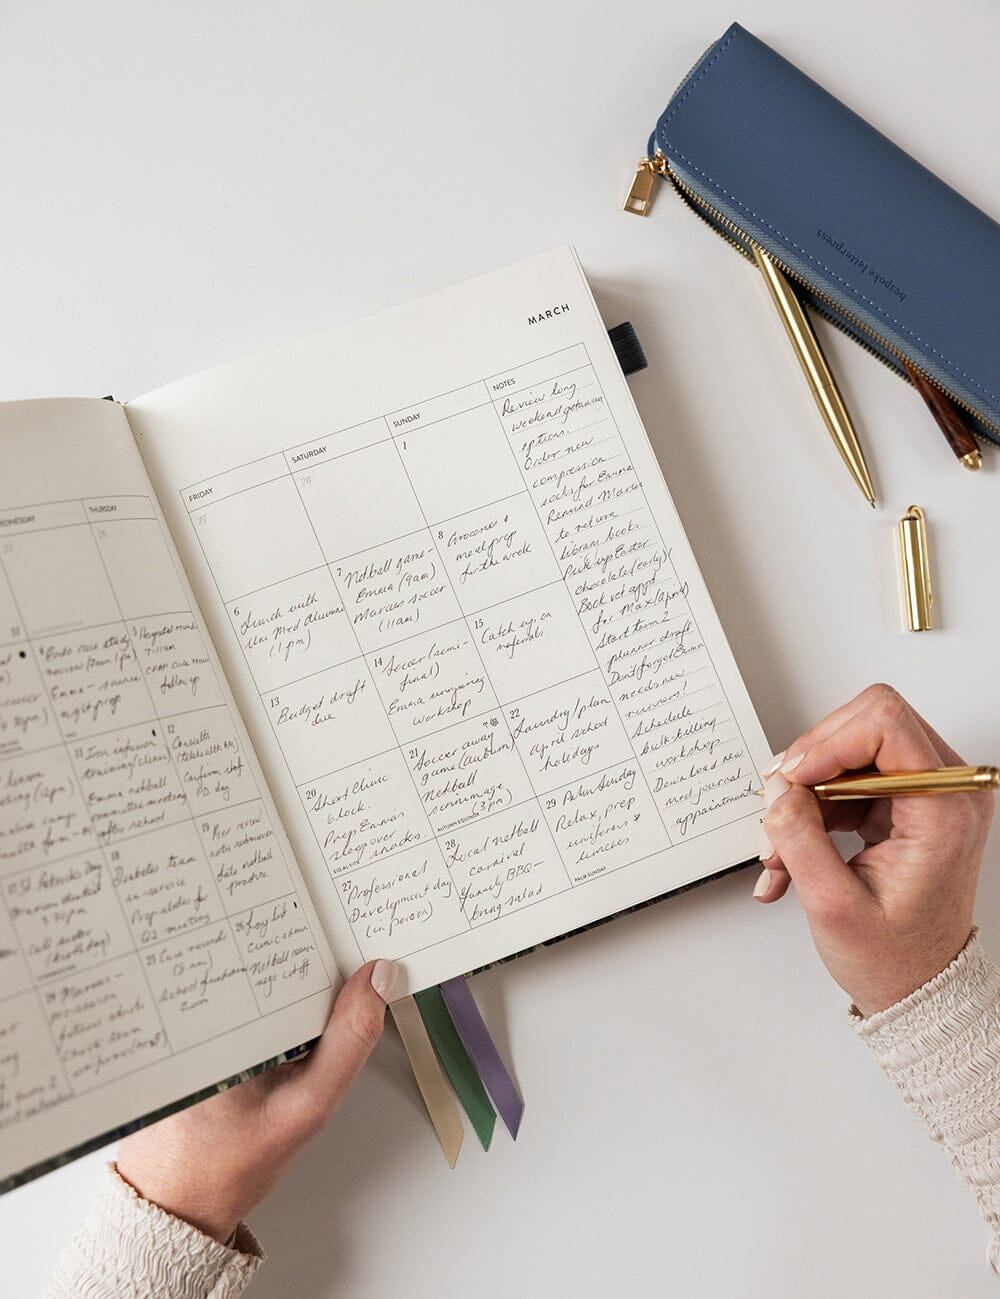 bespoke letterpress
MARCH
WEDNESDAY
THURSDAY
25
26
4 Endo case study
review (Zoom 1pm)
Emma - science
night prep
5 Hospital rounds
7-11am
follow up
11 Iron infusion
training (clinic)
Emma netball
committee meeting
after school
12
Consults
(telehealth AM)
Confirm staff
PD day
St Patricks Day
3.30pm
call sister
(birthday)
18
Diabetes team
in-service
Prep slides for
Q2 meeting
19
Peer review
notes submission
Late netball
practice
25 Case records
(8am)
School fundraiser
Zoom
26 Long list
clinic admin
Netball season
rego cutoff
FRIDAY
SATURDAY
SUNDAY
NOTES
27
28
1
6
Lunch with
Uni Med Alumni
(1pm)
7
Netball game-
Emma (9am)
Marcus soccer
(11am)
8 Groceries &
meal prep
for the week
13
Budget draft
due
14
Soccer (semi-
final)
Emma umpiring
workshop
15
Catch up on
referrals
20
Short Clinic
block.
Prep Emmas
sleepover
snacks.
EID AL-FITR
21
Soccer away
game (auburn)
Netball
scrimmage
(3pm)
AUTUMN EQUINOX
22
Laundry/plan
april school
holidays
27
Professional
Development day
(in person)
28
Local netball
carnival
Family BBQ-
bring salad
29 Palm Sunday
Relax, prep
uniforms &
lunches
PALM SUNDAY
Review long
weekend getaway
options.
Order new
compression
socks for Emma
Remind Marcus
to return
library books
Pick up Easter
chocolate (early)
Book vet appt
for Max (april)
Start term 2
planner draft
Don't forget Emma
needs new
runners!
Schedule
bulk-billing
workshop.
Download new
med journal
appointment